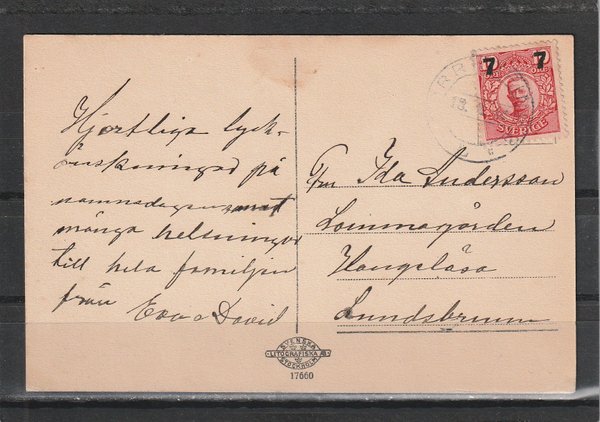 Hjertliga lyck-
önskningar på
namnsdagen samt
många helsningar
till hela familjen
från
Eva o David
Fru Ida Andersson
Lommagården
Hangelösa
Lundsbrunn
7 7
SVERIGE
13.
SVENSKA
LITOGRAFISKA AB
STOCKHOLM
17660